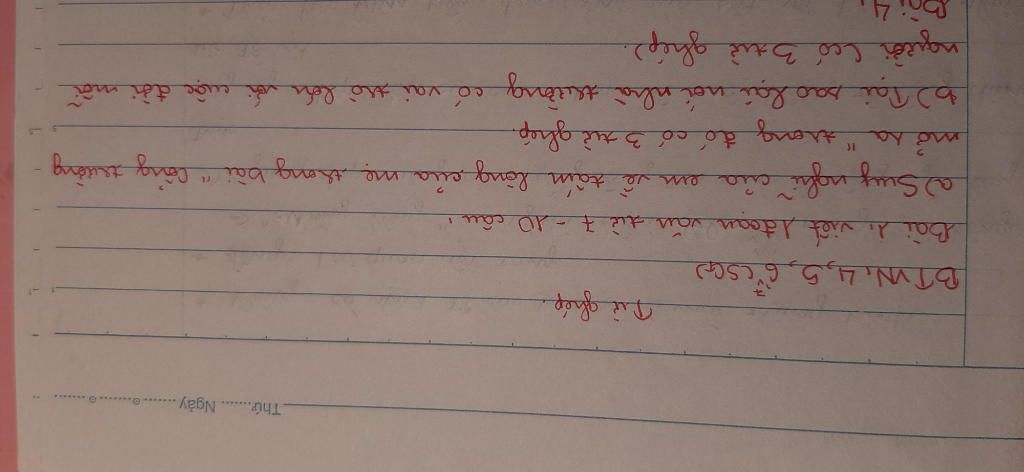 Thứ........ Ngày ........o........o........
Từ ghép.
BTVN: 4, 5, 6, 7 (SGK)
Bài 1. viết 1 đoạn văn từ 7 - 10 câu.
a) Suy nghĩ của em về tấm lòng của mẹ trong bài "Cổng trường
mở ra" trong đó có 3 từ ghép.
b) Tại sao lại nói nhà trường có vai trò lớn với cuộc đời mỗi
người (có 3 từ ghép).
Bài 4.